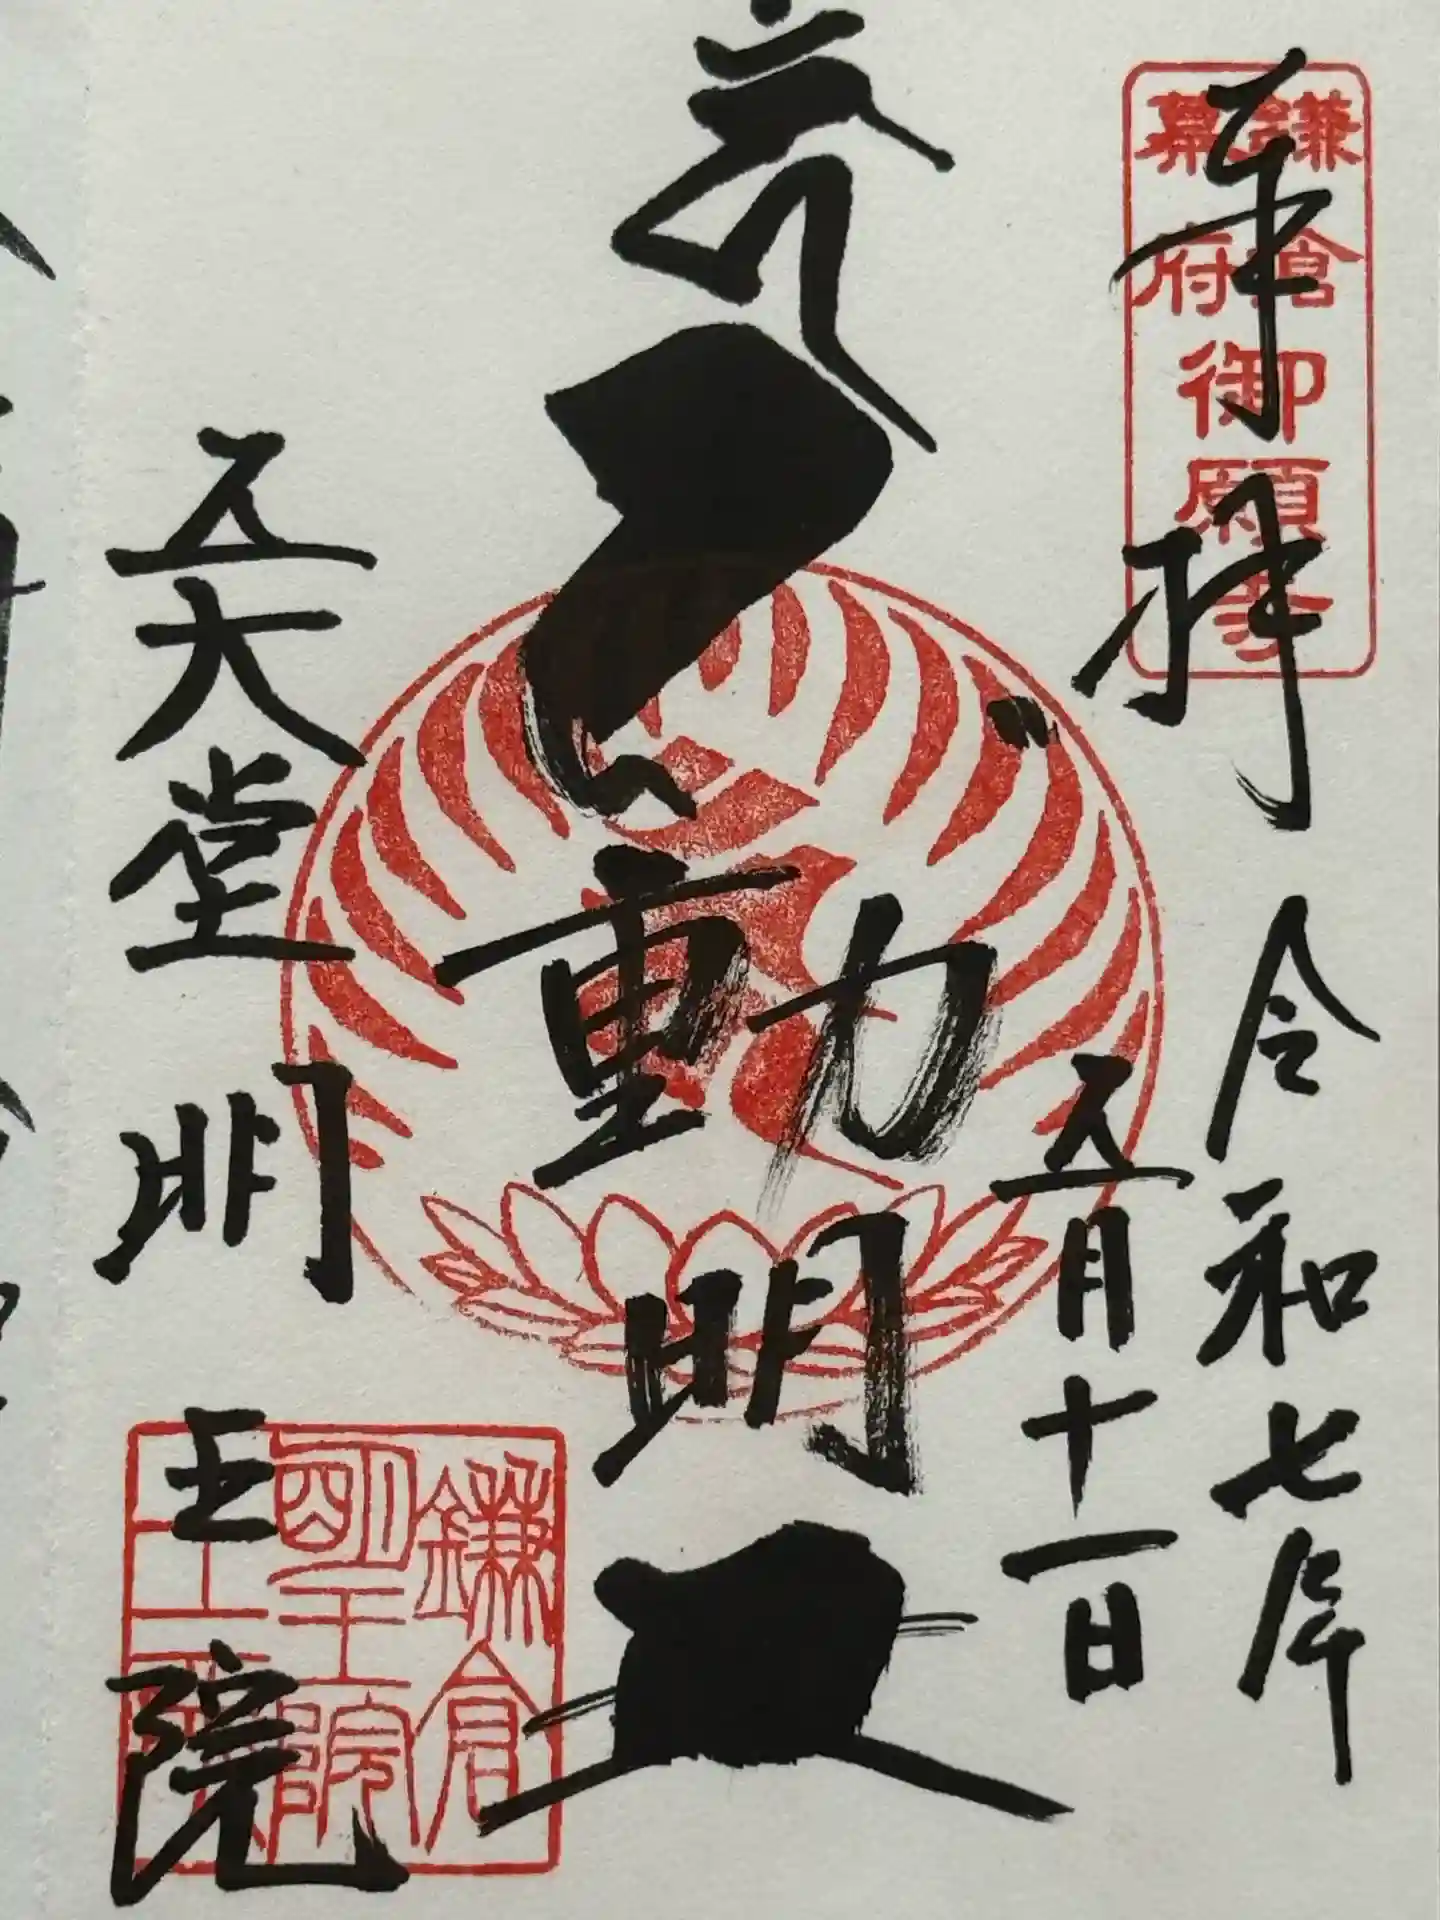 奉拝
令和七年
五月十一日
不動明王
五大堂明王院
鎌倉
幕府
御願寺
鎌倉
明王院